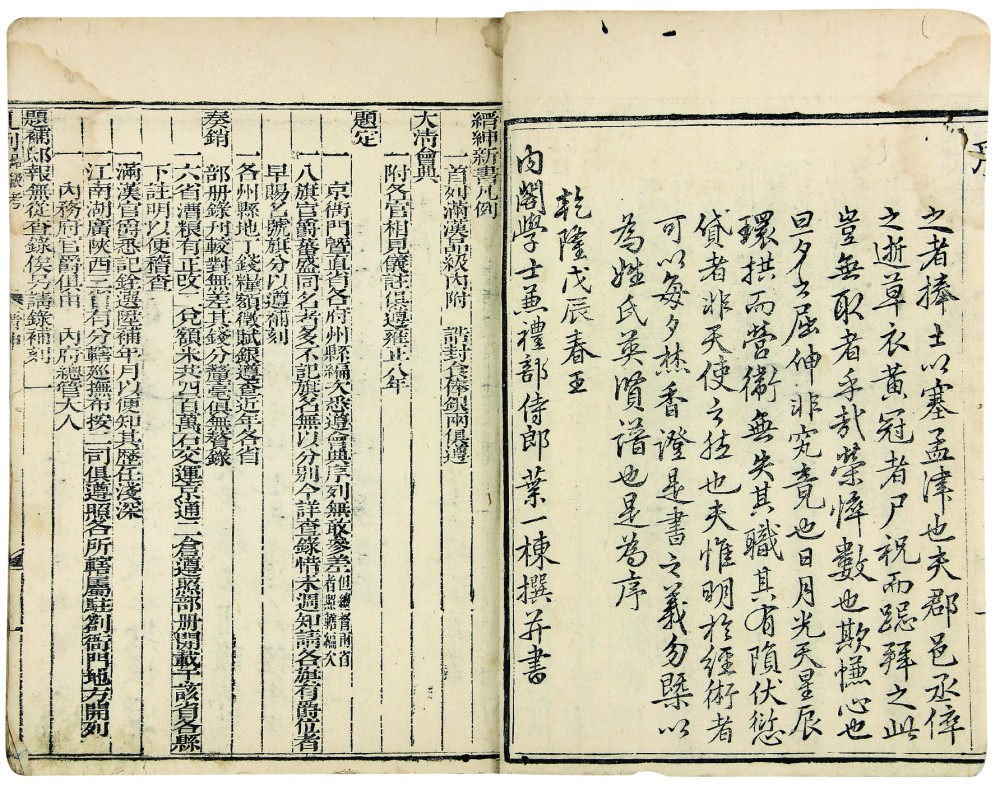 之者捧土以塞孟津也夫郡邑丞倅
之逝草衣黃冠者尸祝而跽拜之此
豈無取者乎哉榮悴數也欺慊心也
旦夕之屈伸非究竟也日月光天星辰
環拱而營衛無失其職其有隕伏愆
貸者非天使之然也夫惟明於經術者
可以每夕焚香證是書之義勿槩以
為姓氏英賢譜也是為序
乾隆戊辰春王
內閣學士兼禮部侍郎葉一棟撰并書
縉紳新書凡例
一首列滿漢品級內附 誥封食俸銀兩俱遵
大清會典
附各官相見儀註俱遵雍正八年
題定
一京衙門暨直省各府州縣編次悉遵會典序列無敢參差但總督兩省者照舊編次
一八旗官爵蕃盛同名者多不記旗名無以分別今詳查錄惟未週知請各旗有爵位者
早賜名號旗分以遵補刻
一各州縣地丁錢糧額徵賦銀遵查近年各省
奏銷
部冊錄刋較對無差其錢分釐毫俱無瞀錄
一六省漕糧有正改一兌額米共四百萬石交運京通二倉遵照部冊開載于該省各縣
下註明以便稽查
一滿漢官爵悉記銓選陞補年月以便知其歷任淺深
一江南湖廣陝西三省有分轄巡撫布按二司俱遵照各所轄屬駐劄衙門地方開列
一內務府官爵俱由 內府總管大人
題補邸報無從查錄俟另請錄補刻